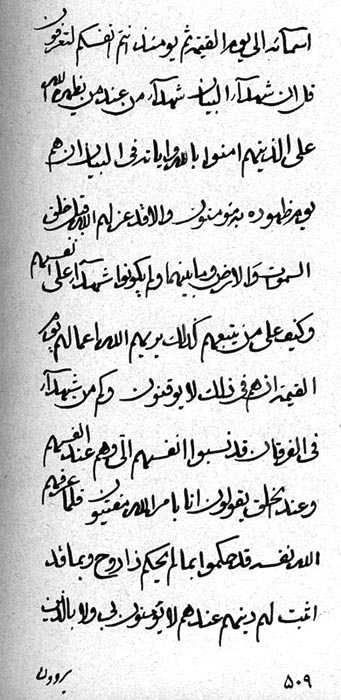 اسمآئه الی یوم القیٰمة ثم یومئذ انتم انفسکم لتعرفون
قل ان شهدآء البیان شهدآء من عند من یظهره الله
علی الذینهم امنوا بالله وایاته فی البیان ان هم
یوم ظهوره به یؤمنون والا قد عزلهم الله قبل خلق
السموات والارض ومابینهما ولم یکونوا شهدآء علی انفسهم
وکیف علی من یتبعهم کذلك یریهم الله اعمالهم یوم
القیٰمة ان هم فی ذلك لا یوقنون وکم من شهدآء
فی الفرقان قد نسبوا انفسهم الی وهم عند انفسهم
وعند الخلق یقولون انا بامر الله مفتیون فلما عرفهم
الله نفسه قد حکموا بمالم یحکم ذا روح وبما قد
اثبت لهم دینهم عندهم لا یؤمنون بی ولا بالذین
یروون
۵۰۹